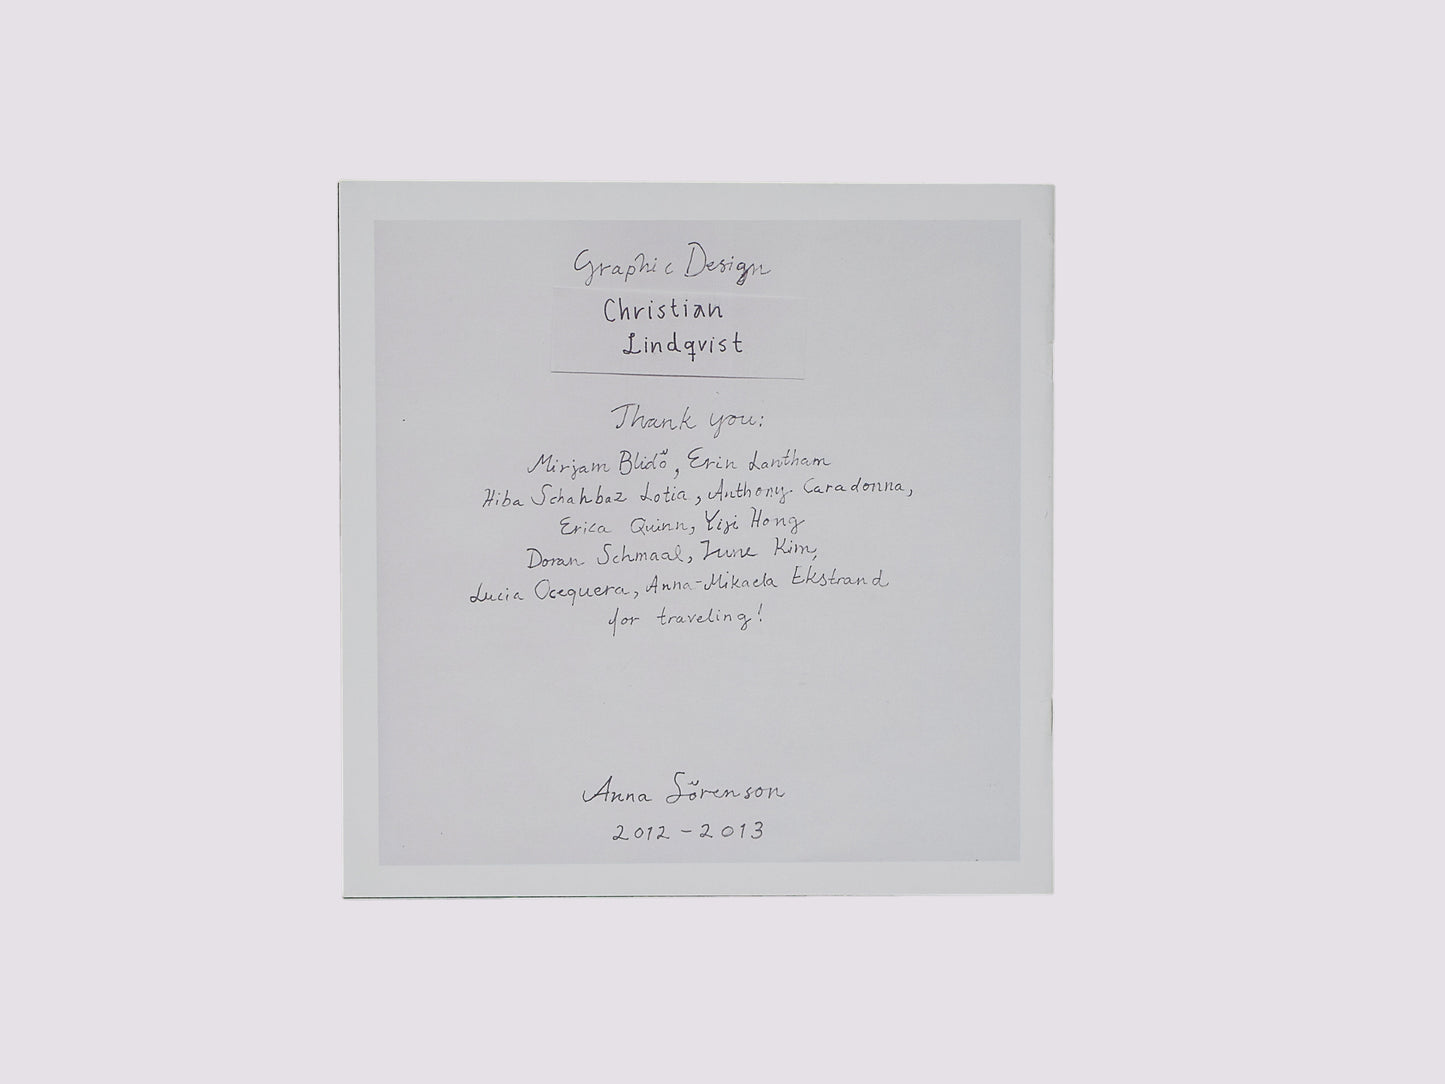 Graphic Design
Christian
Lindqvist
Thank you:
Mirjam Blidö, Erin Lantham
Hiba Schahbaz Lotia, Anthony Caradonna,
Erica Quinn, Yiyi Hong
Doran Schmaal, June Kim,
Lucia Ocequera, Anna-Mikaela Ekstrand
for traveling!
Anna Sörenson
2012 - 2013